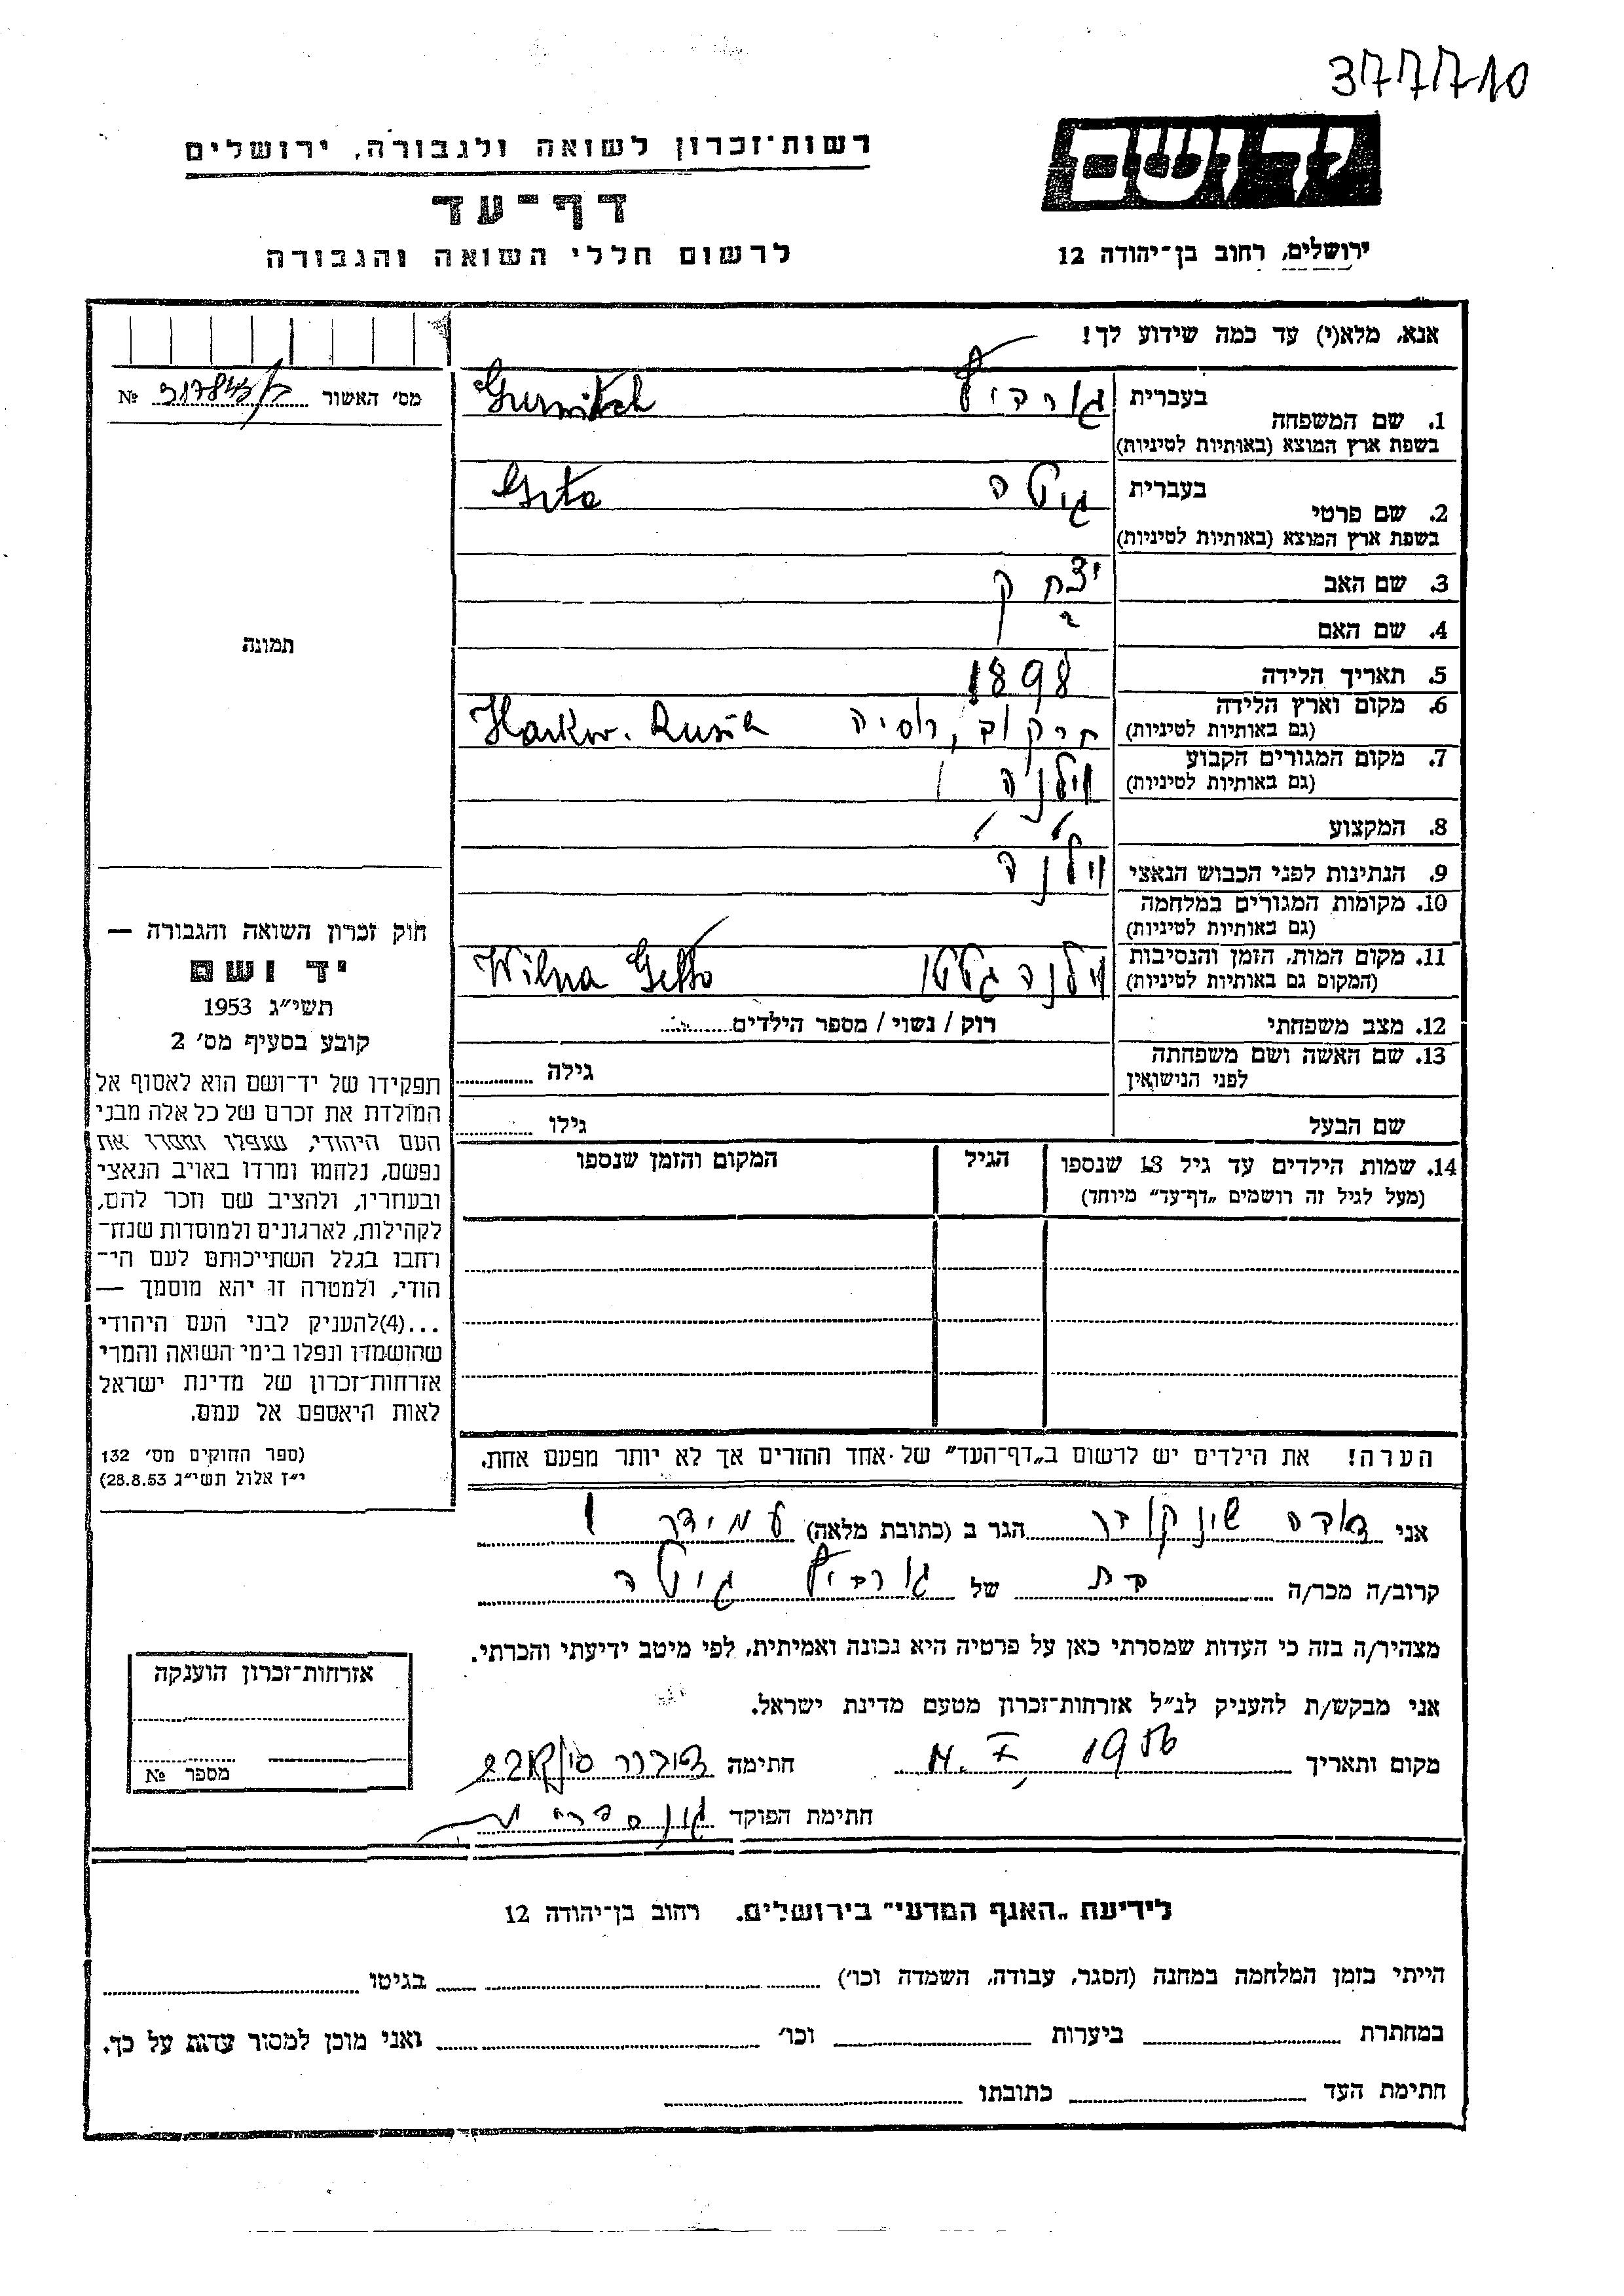 3777710
יד ושם
ירושלים, רחוב בן־יהודה 12
רשות־זכרון לשואה ולגבורה, ירושלים
דף־עד
לרשום חללי השואה והגבורה
אנא, מלא(י) עד כמה שידוע לך!
מס' האשור №
1. שם המשפחה
בעברית
Gurwitsch
בשפת ארץ המוצא (באותיות לטיניות)
2. שם פרטי
בעברית גיטה Gita
בשפת ארץ המוצא (באותיות לטיניות)
3. שם האב יצחק
4. שם האם ?
5. תאריך הלידה 1898
6. מקום וארץ הלידה חרקוב, רוסיה Harkow. Rusia
(גם באותיות לטיניות)
7. מקום המגורים הקבוע וילנה
(גם באותיות לטיניות)
8. המקצוע
9. הנתינות לפני הכבוש הנאצי וילנה
10. מקומות המגורים במלחמה
(גם באותיות לטיניות)
11. מקום המות, הזמן והנסיבות וילנה גטו Wilna Getto
(המקום גם באותיות לטיניות)
12. מצב משפחתי רוק / נשוי / מספר הילדים
13. שם האשה ושם משפחתה
לפני הנישואין גילה
שם הבעל גילו
14. שמות הילדים עד גיל 18 שנספו הגיל המקום והזמן שנספו
(מעל לגיל זה רושמים „דף־עד" מיוחד)
תמונה
חוק זכרון השואה והגבורה —
יד ושם
תשי"ג 1953
קובע בסעיף מס' 2
תפקידו של יד־ושם הוא לאסוף אל
המולדת את זכרם של כל אלה מבני
העם היהודי, שנפלו ומסרו את
נפשם, נלחמו ומרדו באויב הנאצי
ובעוזריו, ולהציב שם וזכר להם,
לקהילות, לארגונים ולמוסדות שנח־
רחבו בגלל השתייכותם לעם הי־
הודי, ולמטרה זו יהא מוסמך —
...(4)להעניק לבני העם היהודי
שהושמדו ונפלו בימי השואה והמרי
אזרחות־זכרון של מדינת ישראל
לאות היאספם אל עמם.
(ספר החוקים מס' 132
י"ז אלול תשי"ג 28.8.53)
הערה! את הילדים יש לרשום ב„דף־העד" של אחד ההורים אך לא יותר מפעם אחת.
אני הגר ב (כתובת מלאה) עמידר
קרוב/ה מכר/ה בת של גיטה
מצהיר/ה בזה כי העדות שמסרתי כאן על פרטיה היא נכונה ואמיתית, לפי מיטב ידיעתי והכרתי.
אני מבקש/ת להעניק לנ"ל אזרחות־זכרון מטעם מדינת ישראל.
מקום ותאריך 1956 חתימה
חתימת הפוקד
אזרחות־זכרון הוענקה
מספר №
לידיעת „האגף המדעי" בירושלים, רחוב בן־יהודה 12
הייתי בזמן המלחמה במחנה (הסגר, עבודה, השמדה וכו') בגיטו
במחתרת ביערות וכו' ואני מוכן למסור עדות על כך.
חתימת העד כתובתו